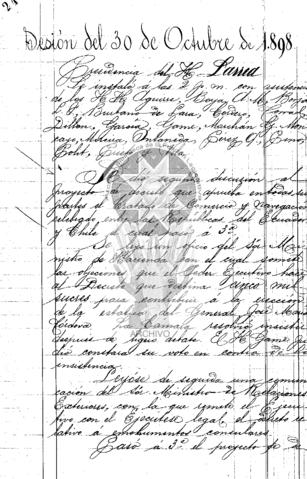 Sesión del 30 de Octubre de 1898.
Presidencia del H. Larrea
Se instaló á las 2 p. m. con asistencia
de los H. H. Aguirre, Borja A. M., Borja
L., Burbano de Lara, Cordero,
Dillon, García, Game, Marchán G., Mon
cayo,
Se dio segunda discusión al
proyecto de decreto que aprueba en todas sus
partes el Tratado de Comercio y Navegación
celebrado entre las Repúblicas del Ecuador
y Chile y pasó á 3ª
Se leyó un oficio del Sor. Mi
nistro de Hacienda con el cual somete
las objeciones que el Poder Ejecutivo hace
al Decreto que destina cinco mil
sucres para contribuir á la erección
de la estatua del General José María
Córdova. La Cámara resolvió insistir
después de ligero debate. El H. Game pi
dió constara su voto en contra de la
insistencia.
Leyóse de seguida una comuni
cación del Sor. Ministro de Relaciones
Exteriores, con la que remite el Ejecu
tivo con el Ejecútese legal, el decreto re
lativo á emolumentos consulares.
Pasó á 3ª el proyecto de de
ARCHIVO